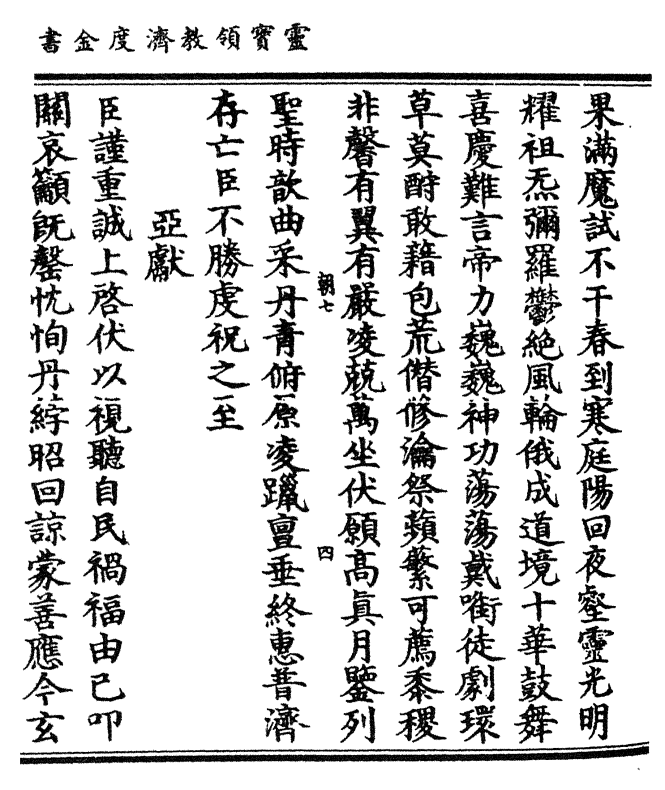 靈寶領教濟度金書
果滿魔試不干春到寒庭陽回夜壑靈光明
耀祖炁彌羅鬱絶風輪俄成道境十華鼓舞
喜慶難言帝力巍巍神功蕩蕩戴㘅徒劇環
草莫酧敢藉包荒僣修瀹祭蘋蘩可薦黍稷
非馨有翼有嚴凌兢萬坐伏願髙眞月鑒列
朝七
四
聖時歆曲采丹青俯原凌躐亶垂終惠普濟
存亡臣不勝虔祝之至
亞獻
臣謹重誠上啓伏以視聽自民禍福由己叩
關哀籲旣罄忱恂丹綍昭回諒蒙善應今玄